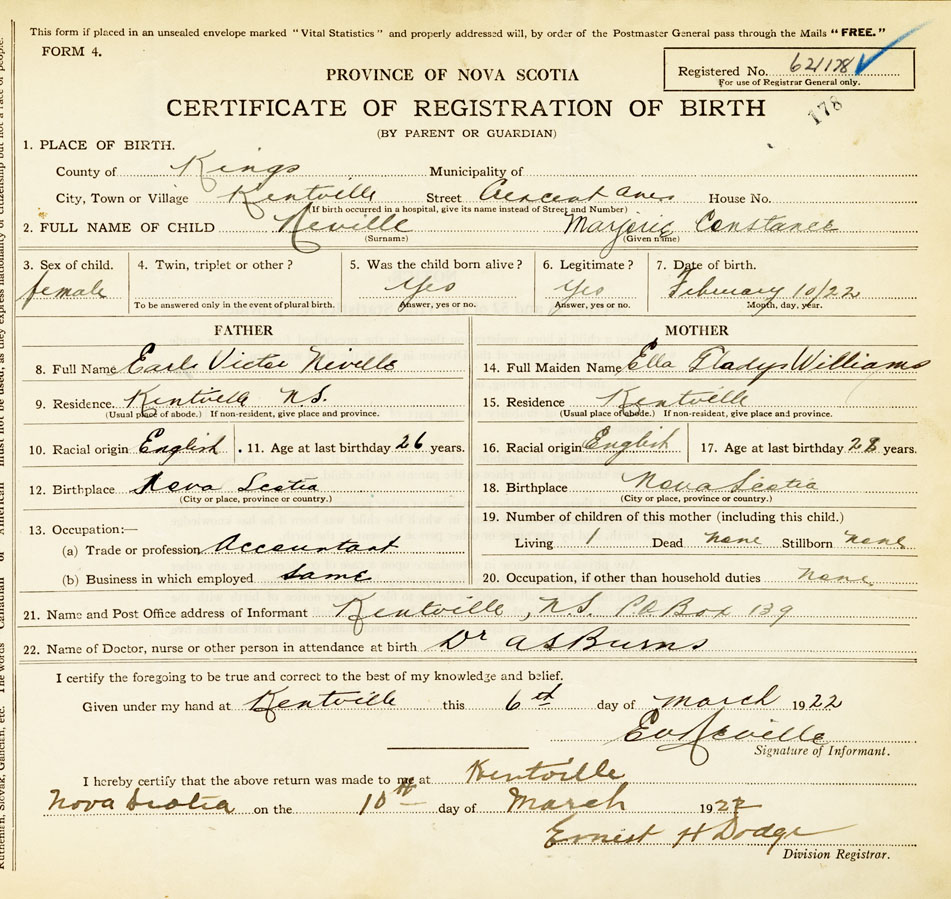 This form if placed in an unsealed envelope marked "Vital Statistics" and properly addressed will, by order of the Postmaster General pass through the Mails "FREE."
FORM 4.
Registered No. 621178
For use of Registrar General only.
178
PROVINCE OF NOVA SCOTIA
CERTIFICATE OF REGISTRATION OF BIRTH
(BY PARENT OR GUARDIAN)
1. PLACE OF BIRTH.
County of Kings Municipality of
City, Town or Village Kentville Street Crescent Ave House No.
(If birth occurred in a hospital, give its name instead of Street and Number)
2. FULL NAME OF CHILD Neville Marjorie Constance
(Surname) (Given name)
3. Sex of child. 4. Twin, triplet or other? 5. Was the child born alive? 6. Legitimate? 7. Date of birth.
female Yes Yes February 10/22
To be answered only in the event of plural birth. Answer, yes or no. Answer, yes or no. Month, day, year.
FATHER
8. Full Name Earle Victor Neville
9. Residence. Kentville N.S.
(Usual place of abode.) If non-resident, give place and province.
10. Racial origin English 11. Age at last birthday 26 years.
12. Birthplace Nova Scotia
(City or place, province or country.)
13. Occupation:—
(a) Trade or profession Accountant
(b) Business in which employed Same
MOTHER
14. Full Maiden Name Ella Gladys Williams
15. Residence Kentville
(Usual place of abode.) If non-resident, give place and province.
16. Racial origin English 17. Age at last birthday 28 years.
18. Birthplace Nova Scotia
(City or place, province or country.)
19. Number of children of this mother (including this child.)
Living 1 Dead none Stillborn none
20. Occupation, if other than household duties none
21. Name and Post Office address of Informant Kentville, N.S. P.O. Box 139
22. Name of Doctor, nurse or other person in attendance at birth Dr A S Burns
I certify the foregoing to be true and correct to the best of my knowledge and belief.
Given under my hand at Kentville this 6th day of March 1922
E V Neville
Signature of Informant.
I hereby certify that the above return was made to me at Kentville
Nova Scotia on the 10th day of March 1922
Ernest H Dodge
Division Registrar.